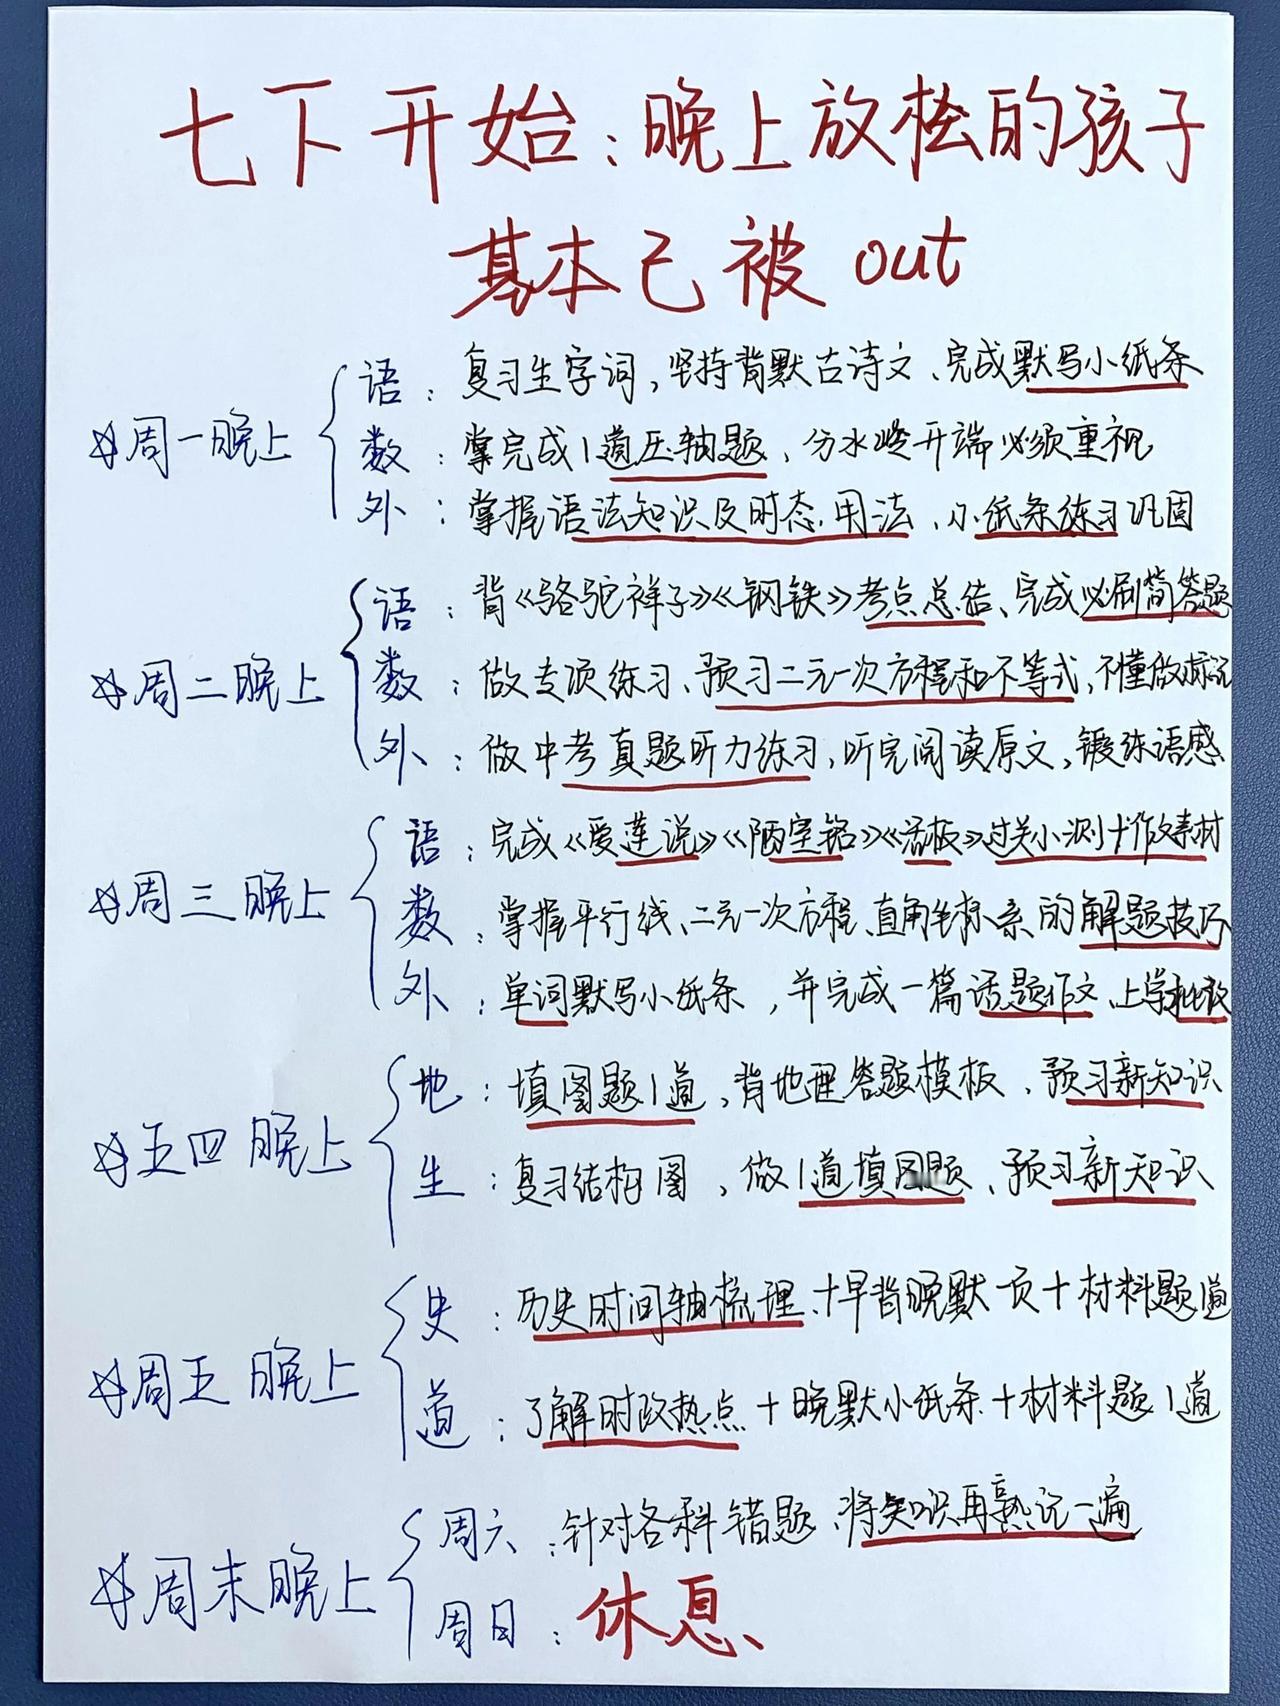 七下开始：晚上放松的孩子
基本已被out
☆周一晚上
语：复习生字词，坚持背默古诗文、完成默写小纸条
数：掌完成1道压轴题，分水岭开端必须重视
外：掌握语法知识及时态.用法、小纸条练习巩固
☆周二晚上
语：背《骆驼祥子》《钢铁》考点总结、完成必刷简答题
数：做专项练习、预习二元一次方程和不等式，不懂做标记
外：做中考真题听力练习，听完阅读原文，锻练语感
☆周三晚上
语：完成《爱莲说》《陋室铭》《活板》过关小测+作文素材
数：掌握平行线、二元一次方程、直角坐标系的解题技巧
外：单词默写小纸条，并完成一篇话题作文、上学批改
☆五四晚上
地：填图题1道，背地理答题模板、预习新知识
生：复习结构图，做1道填图题、预习新知识
☆周五晚上
史：历史时间轴梳理.+早背晚默一页+材料题1道
道：了解时政热点+晚默小纸条+材料题1道
☆周末晚上
周六：针对各科错题、将知识再熟记一遍
周日：休息、